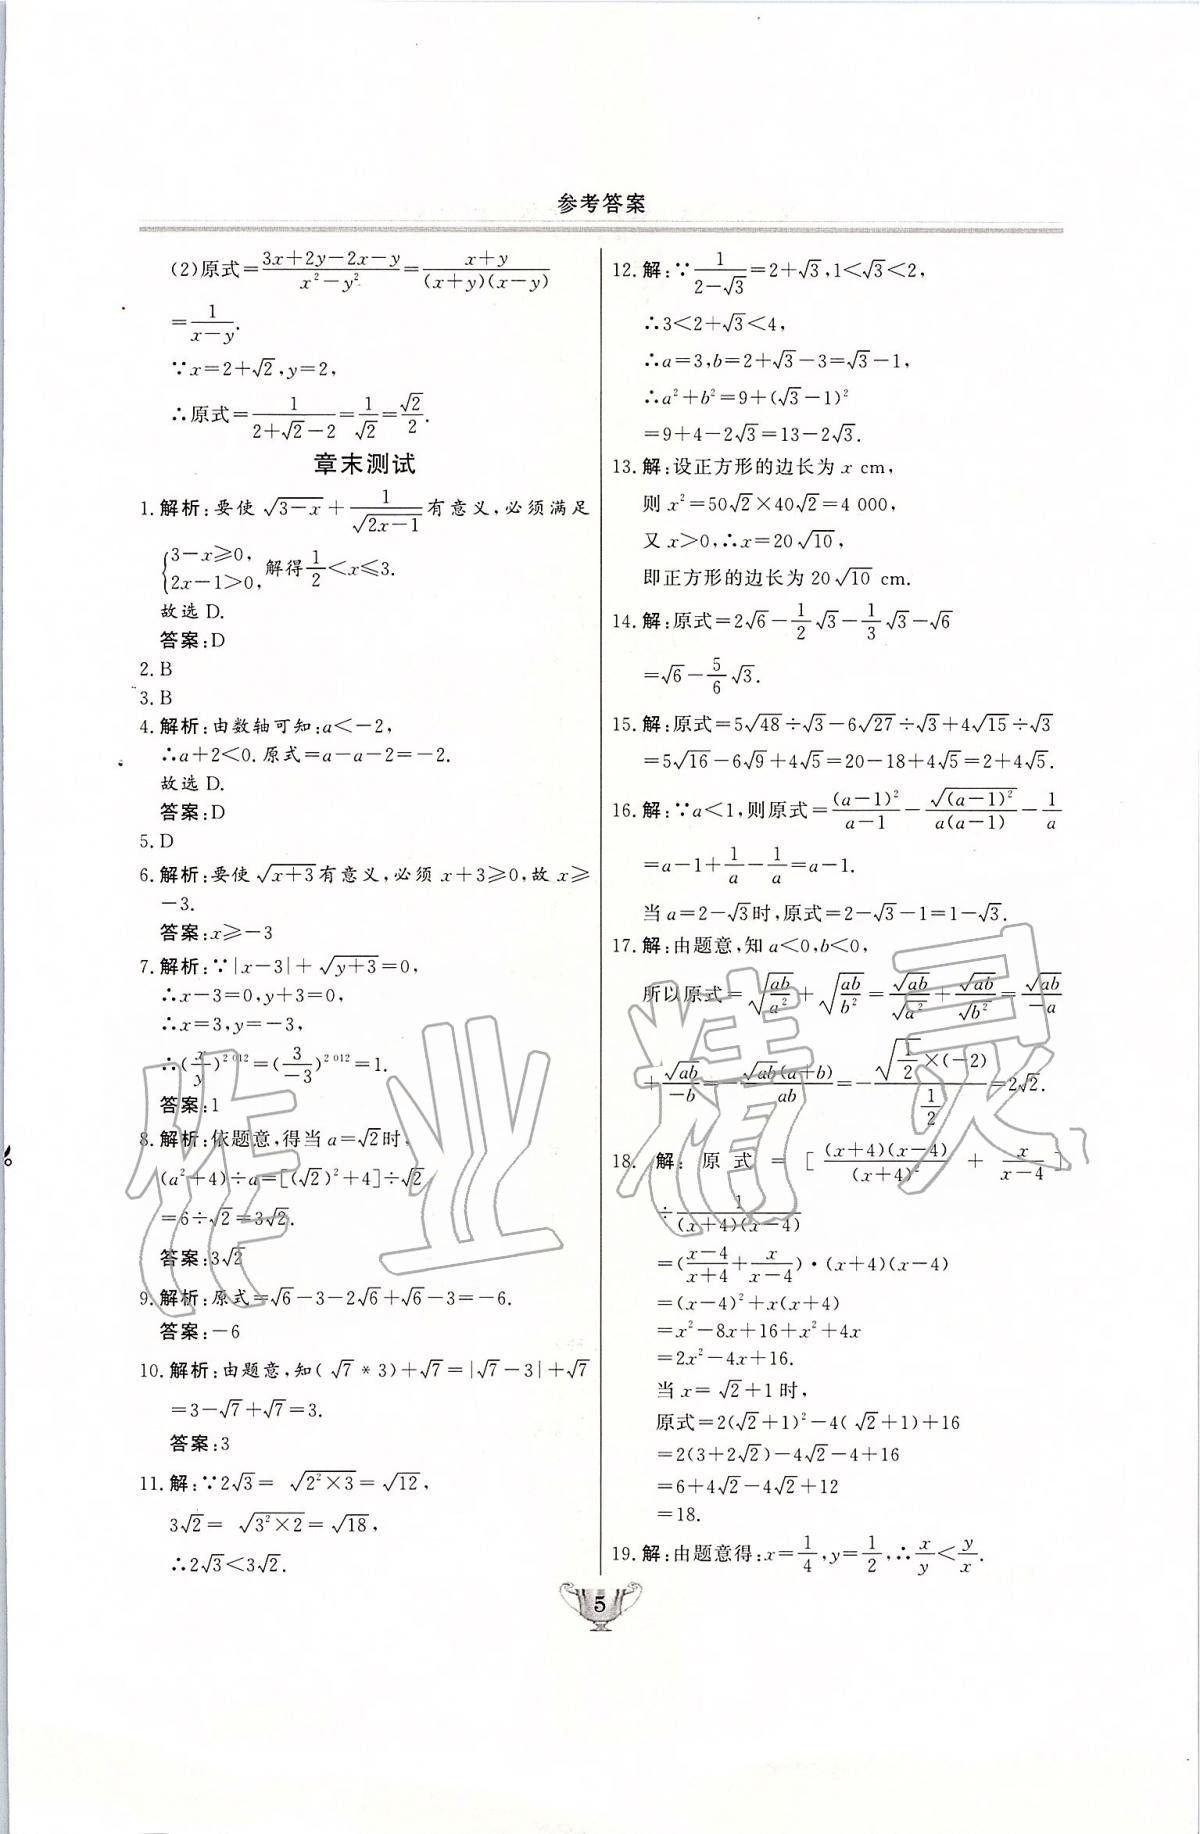 参考答案
(2)原式=\frac{3x+2y-2x-y}{x²-y²}=\frac{x+y}{(x+y)(x-y)}
=\frac{1}{x-y}.
∵x=2+√2,y=2,
∴原式=\frac{1}{2+√2-2}=\frac{1}{√2}=\frac{√2}{2}.
章末测试
1.解析:要使√(3-x)+\frac{1}{√(2x-1)}有意义,必须满足
{3-x≥0,
2x-1>0, 解得\frac{1}{2}<x≤3.
故选 D.
答案:D
2.B
3.B
4.解析:由数轴可知:a<-2,
∴a+2<0.原式=a-a-2=-2.
故选 D.
答案:D
5.D
6.解析:要使√(x+3)有意义,必须 x+3≥0,故 x≥
-3.
答案:x≥-3
7.解析:∵|x-3|+√(y+3)=0,
∴x-3=0,y+3=0,
∴x=3,y=-3,
∴(\frac{x}{y})^{2 012}=(\frac{3}{-3})^{2 012}=1.
答案:1
8.解析:依题意,得当 a=√2时,
(a²+4)÷a=[(√2)²+4]÷√2
=6÷√2=3√2.
答案:3√2
9.解析:原式=√6-3-2√6+√6-3=-6.
答案:-6
10.解析:由题意,知(√7*3)+√7=|√7-3|+√7
=3-√7+√7=3.
答案:3
11.解:∵2√3=√(2²×3)=√12,
3√2=√(3²×2)=√18,
∴2√3<3√2.
12.解:∵\frac{1}{2-√3}=2+√3,1<√3<2,
∴3<2+√3<4,
∴a=3,b=2+√3-3=√3-1,
∴a²+b²=9+(√3-1)²
=9+4-2√3=13-2√3.
13.解:设正方形的边长为 x cm,
则 x²=50√2×40√2=4 000,
又 x>0,∴x=20√10,
即正方形的边长为 20√10 cm.
14.解:原式=2√6-\frac{1}{2}√3-\frac{1}{3}√3-√6
=√6-\frac{5}{6}√3.
15.解:原式=5√48÷√3-6√27÷√3+4√15÷√3
=5√16-6√9+4√5=20-18+4√5=2+4√5.
16.解:∵a<1,则原式=\frac{(a-1)²}{a-1}-\frac{√((a-1)²)}{a(a-1)}-\frac{1}{a}
=a-1+\frac{1}{a}-\frac{1}{a}=a-1.
当 a=2-√3时,原式=2-√3-1=1-√3.
17.解:由题意,知 a<0,b<0,
所以原式=√(\frac{ab}{a²})+√(\frac{ab}{b²})=\frac{√ab}{√a²}+\frac{√ab}{√b²}=\frac{√ab}{-a}
+\frac{√ab}{-b}=-\frac{√ab(a+b)}{ab}=-\frac{√(\frac{1}{2})×(-2)}{\frac{1}{2}}=2√2.
18.解:原式=[\frac{(x+4)(x-4)}{(x+4)²}+\frac{x}{x-4}]
÷\frac{1}{(x+4)(x-4)}
=(\frac{x-4}{x+4}+\frac{x}{x-4})·(x+4)(x-4)
=(x-4)²+x(x+4)
=x²-8x+16+x²+4x
=2x²-4x+16.
当 x=√2+1时,
原式=2(√2+1)²-4(√2+1)+16
=2(3+2√2)-4√2-4+16
=6+4√2-4√2+12
=18.
19.解:由题意得:x=\frac{1}{4},y=\frac{1}{2},∴\frac{x}{y}<\frac{y}{x}.
5
作业精灵